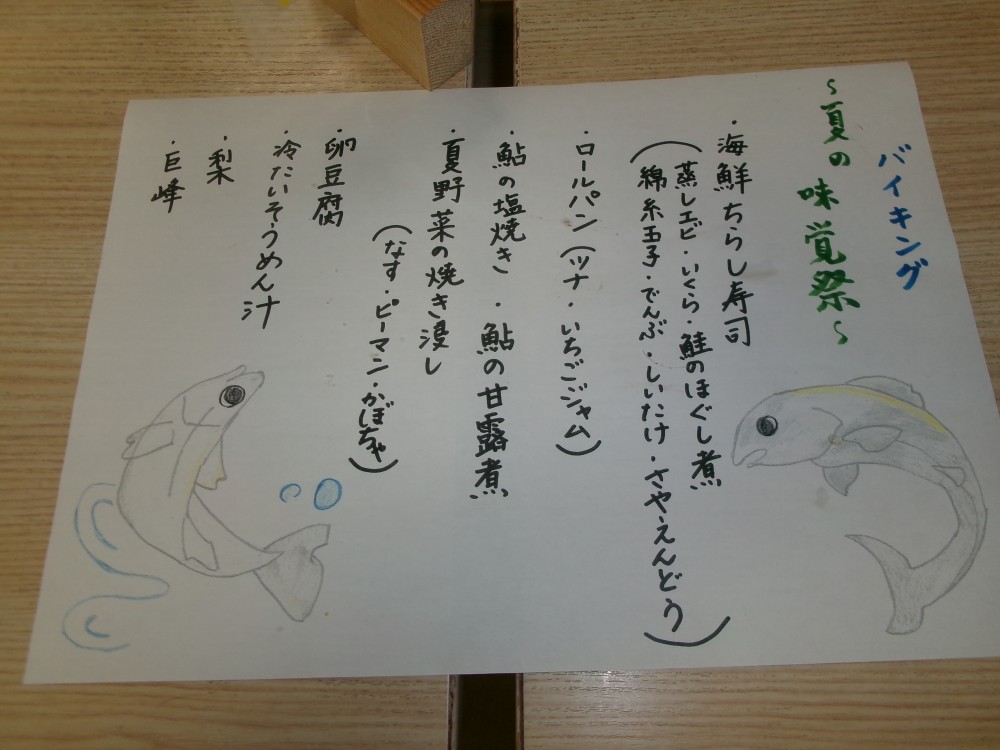 バイキング
～夏の味覚祭～
・海鮮ちらし寿司
（蒸しエビ・いくら・鮭のほぐし煮
綿糸玉子・でんぶ・しいたけ・さやえんどう）
・ロールパン（ツナ・いちごジャム）
・鮎の塩焼き ・鮎の甘露煮
・夏野菜の焼き浸し
（なす・ピーマン・かぼちゃ）
・卵豆腐
・冷たいそうめん汁
・梨
・巨峰